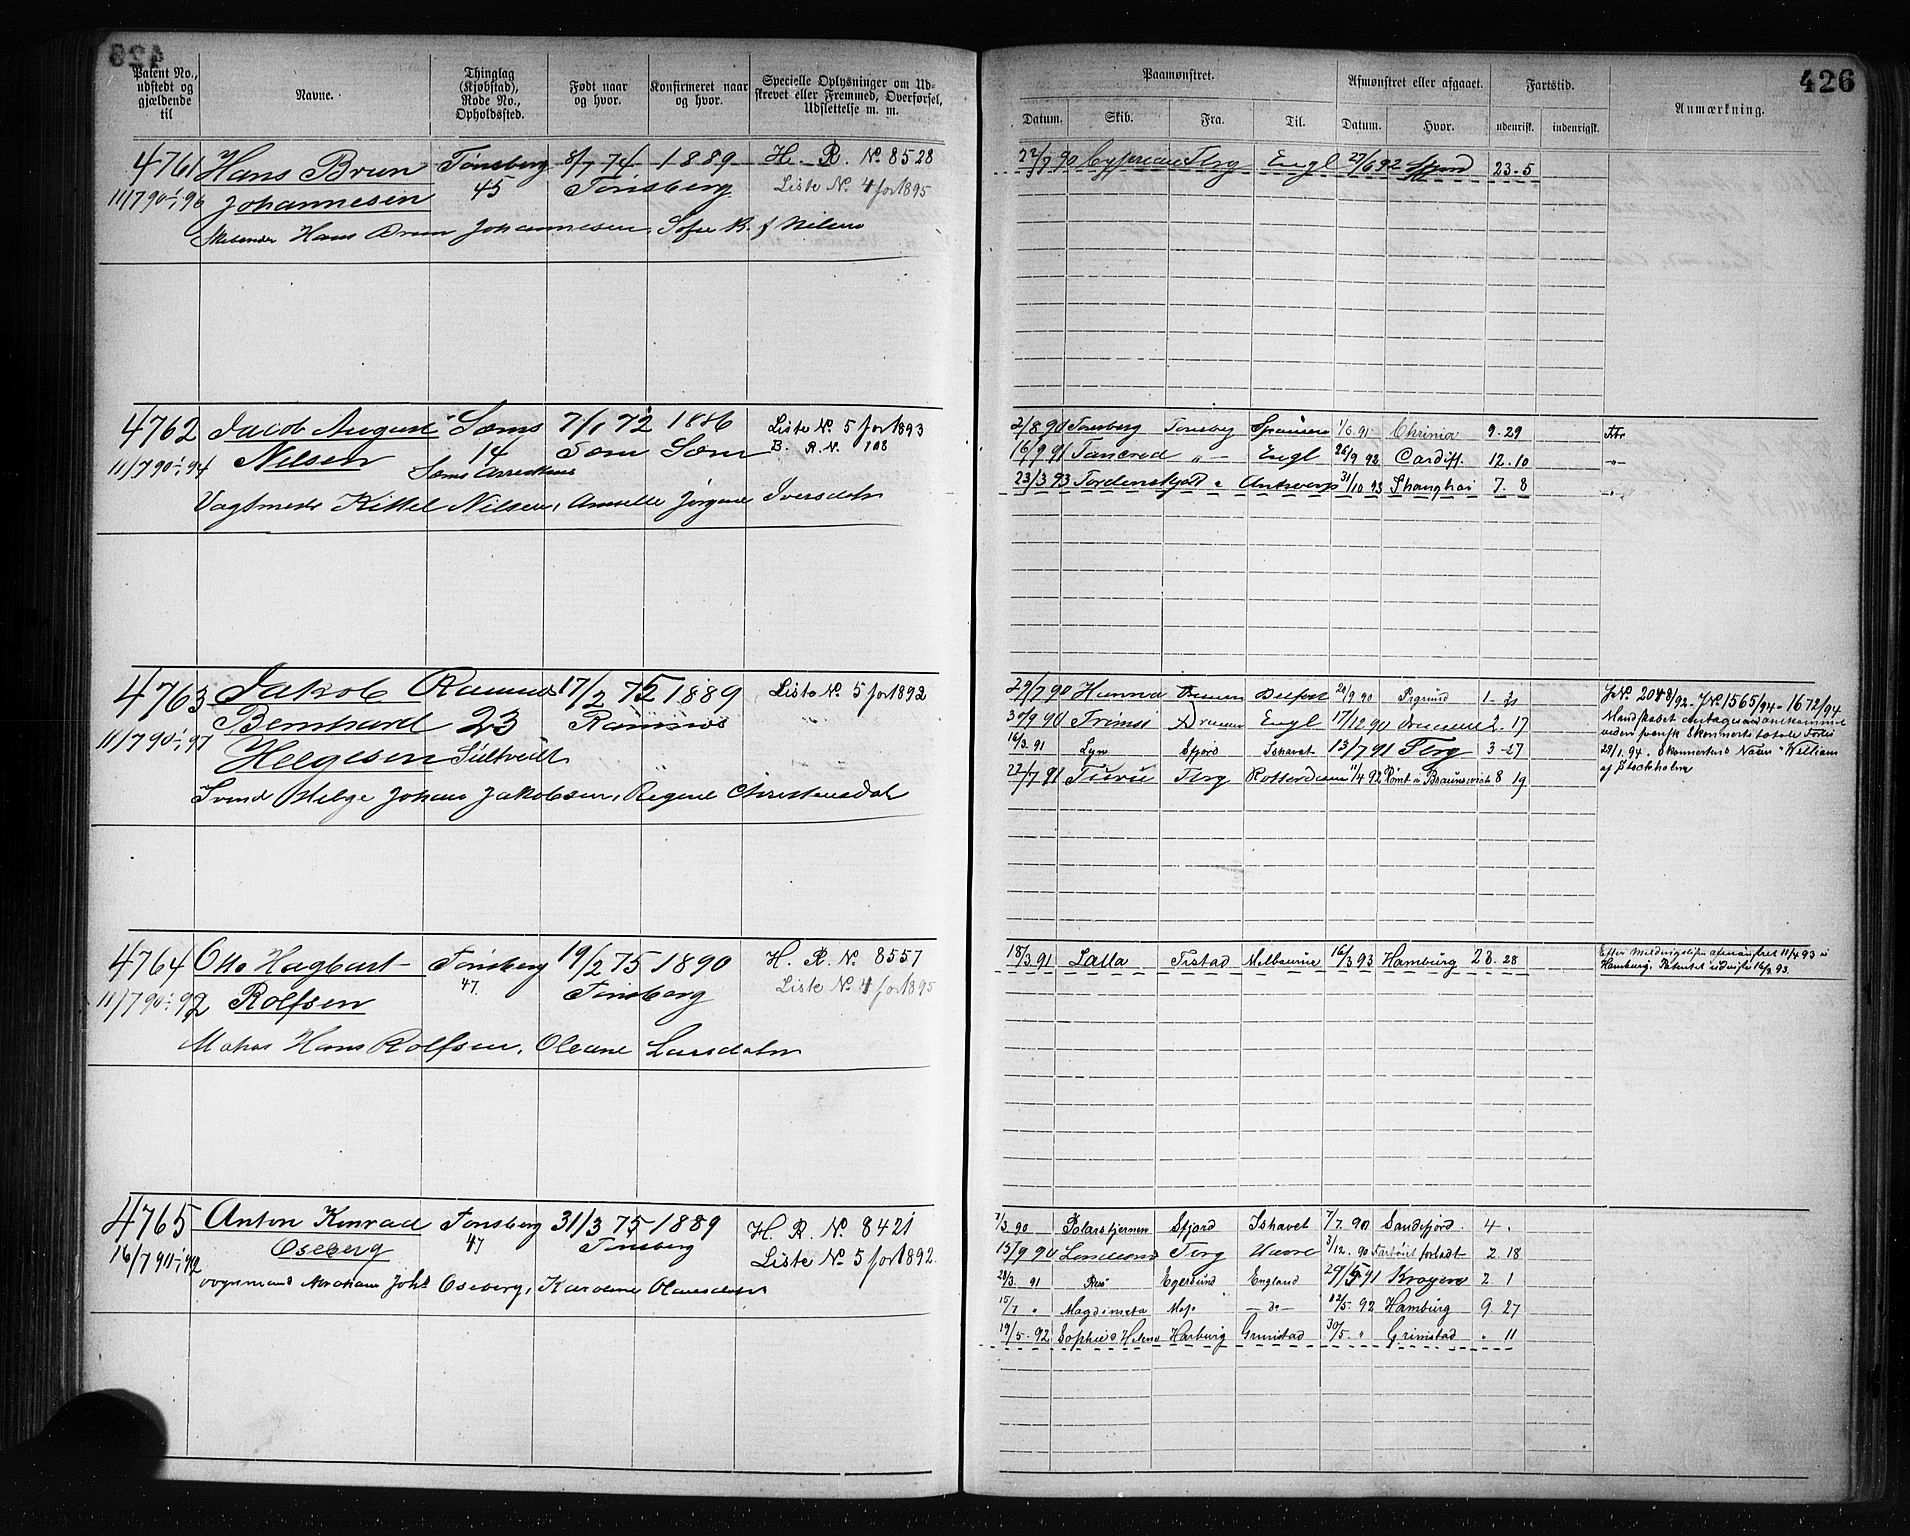 426
Patent No., udstedt og gjældende til
Navne.
Thinglag (Kjøbstad), Rode No., Opholdssted.
Født naar og hvor.
Konfirmeret naar og hvor.
Specielle Oplysninger om Udskrevet eller Fremmed, Overførsel, Udslettelse m. m.
Paamønstret.
Afmønstret eller afgaaet.
Fartstid.
Anmærkning.
Datum. Skib. Fra. Til. Datum. Hvor. udenrisk. indenrigsk.
4761 Hans Brun Tønsberg 8/7 74 1889 H. R. No. 8528
11/7 90 -1/1 96 Johannesen 45 Tønsberg Liste No. 4 for 1895
Hans Brun Johannesen, Sofie B. f Nilsen
22/7 90 Cyprian Tbrg Engl 27/6 92 Sfjord 23. 5
4762 Jacob August Sæms 7/1 72 1886 Liste No. 5 for 1893
11/7 90 -1/1 94 Nilsen 14 Sæm Sæm B. R. N. 108
Vagtmester Kittel Nilsen, Amalie Jørgine Iversdatr
2/8 90 Tønsberg Tønsbg 1/6 91 Chrinia 9. 29
16/9 91 Tancred " - Engl 26/9 92 Cardiff. 12. 10 "-
23/3 93 Tordenskjold " Antwerp 31/10 93 Shanghai 7. 8 "-
4763 Jakob Ramnes 17/2 75 1889 Liste No. 5 for 1892
Bernhard 23 Ramnæs
11/7 90 -1/1 97 Helgesen
Svend Helge Johans Jakobsen, Regine Christensdatr
29/7 90 Hunna Drammen Belfast 20/9 90 Prgrund 1.
30/9 90 Drammen Engl 17/12 90 Drammen 2. 17
16/3 91 Lyn Sfjord Ishavet 13/7 91 Tbrg 3 - 27
22/7 91 Tbrg Rotterdam 11/4 92 Rømt i Brunswick 8 19
J No. 2048/92 - J No. 1565/94 - 1672/94
29/1 94. Skonnertens Navn "William
af Stockholm
4764 Otto Hagbart Tønsberg 19/2 75 1890 H. R. No. 8557
11/7 90 -1/1 92 Rolfsen 47 Tønsberg Liste No. 4 for 1895
Hans Rolfsen, Oleane Larsdatr
18/3 91 Lalla Fistad Melbourne 16/3 93 Hamburg 23. 28
Hamburg. Patentet udvist 16/3 93.
4765 Anton Konrad Tønsberg 31/3 75 1889 H. R. No. 8421
16/7 90 -1/1 92 Oseberg 47 Tønsberg Liste No. 5 for 1892.
Vognmand Abraham Johs Oseberg, Karoline Olausdatr
7/3 90 Polarstjernen Sfjord Ishavet 7/7. 90 Sandefjord. 4 .
15/9 90 Tbrg Havre 3/12. 90 Fartøiet forladt 2. 18
28/3. 91 Egersund England 29/5 91 Kragerø 2 1
15/7 " - do - 12/5. 92 Hamburg 9 27
19/5. 92 Sophie Helene Harburg Grimstad 30/5. " Grimstad " 11